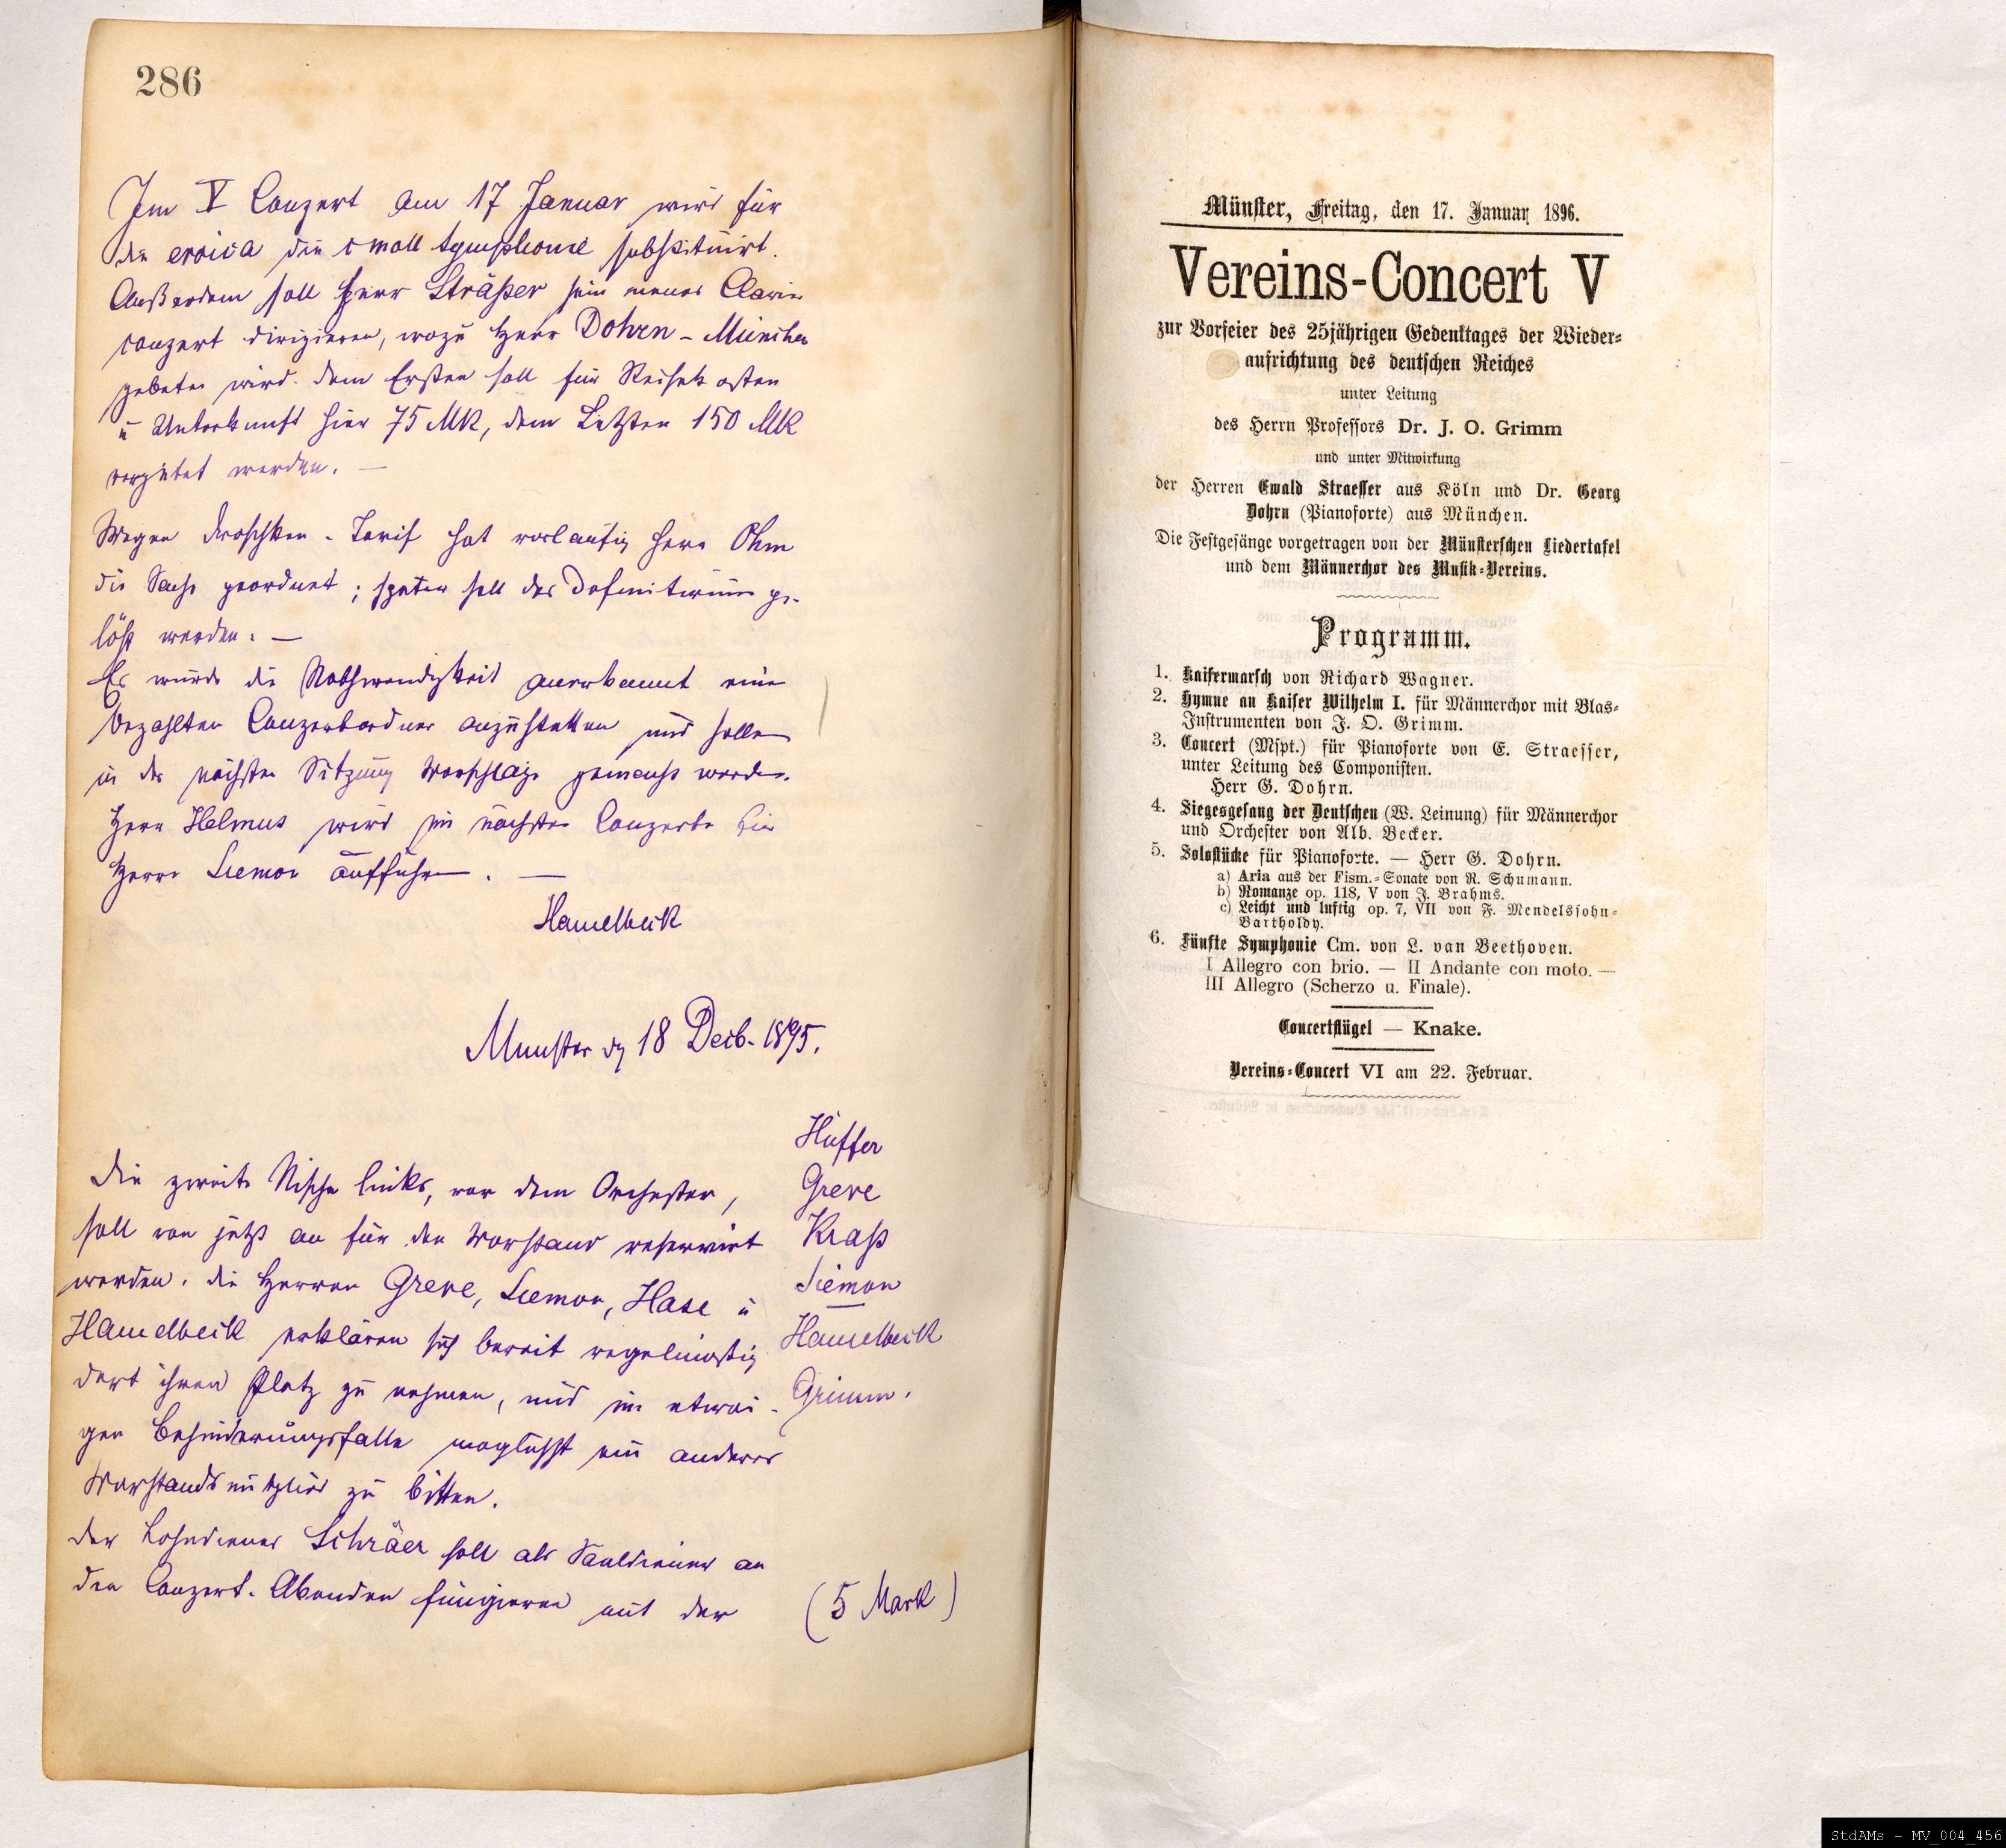 286
Im V Conzert am 17 Januar wird für
die eroica die c moll Symphonie substituirt.
Außerdem soll Herr Sträßer sein neues Clavier
conzert dirigieren, wozu Herr Dohrn - München
gebeten wird. Dem Ersten soll für Reisekosten
u Unterkunft hier 75 MK, dem Letzten 150 MK
vergütet werden. —
Wegen Droschken-Tarif hat vorläufig Herr Ohm
die Sache geordnet; später soll das Definitivum ge-
löst werden. —
Es wurde die Nothwendigkeit anerkannt einen
bezahlten Conzertordner anzustellen und sollen
in der nächsten Sitzung Vorschläge gemacht werden.
Herr Helmus wird im nächsten Conzerte für
Herrn Siemon aufführen. —
Hamelbeck
Munster dn 18 Decb. 1895.
Hüffer
Greve
Kraß
Siemon
Hamelbeck
Grimm.
Die zweite Nische links, vor dem Orchester,
soll von jetzt an für den Vorstand reservirt
werden. Die Herren Greve, Siemon, Hase u
Hamelbeck erklären sich bereit regelmäßig
dort ihren Platz zu nehmen, und im etwai-
gen Behinderungsfalle moglichst ein anderes
Vorstandsmitglied zu bitten.
Der Lohndiener Schräer soll als Saaldiener an
den Conzert-Abenden fungieren mit der (5 Mark)
Münster, Freitag, den 17. Januar 1896.
Vereins-Concert V
zur Vorfeier des 25jährigen Gedenktages der Wieder-
aufrichtung des deutschen Reiches
unter Leitung
des Herrn Professors Dr. J. O. Grimm
und unter Mitwirkung
der Herren Ewald Straesser aus Köln und Dr. Georg
Dohrn (Pianoforte) aus München.
Die Festgesänge vorgetragen von der Münsterschen Liedertafel
und dem Männerchor des Musik-Vereins.
Programm.
1. Kaisermarsch von Richard Wagner.
2. Hymne an Kaiser Wilhelm I. für Männerchor mit Blas-
Instrumenten von J. O. Grimm.
3. Concert (Mspt.) für Pianoforte von E. Straesser,
unter Leitung des Componisten.
Herr G. Dohrn.
4. Siegesgesang der Deutschen (W. Leinung) für Männerchor
und Orchester von Alb. Becker.
5. Solostücke für Pianoforte. — Herr G. Dohrn.
a) Aria aus der Fism.-Sonate von R. Schumann.
b) Romanze op. 118, V von J. Brahms.
c) Leicht und luftig op. 7, VII von F. Mendelssohn-
Bartholdy.
6. Fünfte Symphonie Cm. von L. van Beethoven.
I Allegro con brio. — II Andante con moto. —
III Allegro (Scherzo u. Finale).
Concertflügel — Knake.
Vereins-Concert VI am 22. Februar.
StdAMs - MV_004_456